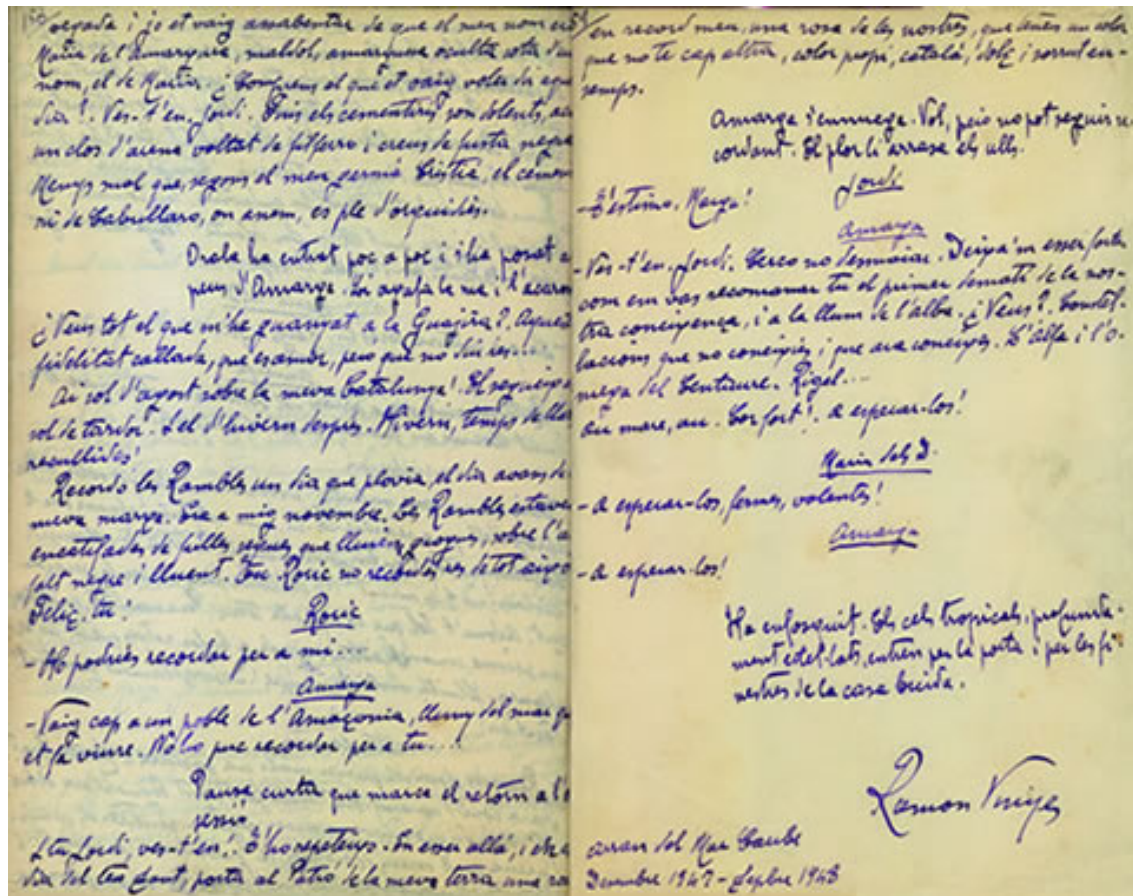 vegada i jo et vaig assabentar de que el meu nom era
Maria de l'Amargura, maldol, amargura oculta sota d'un
nom, el de Maria. ¿Comprens el què et vaig voler dir aquell
dia?. Ves-t'en, Jordi. Fins els cementiris son dolents,
un clos d'arena voltat de filferro i creus de fusta negra
Menys mal que, segons el meu germà Cristià, el cementi
ri de Cabrillaro, on anem, es ple d'orquidès.
Drala ha entrat poc a poc i s'ha posat a
peus d'Amarga. Li agafa la mà i l'acaron
¿Veus tot el que m'he guanyat a la Guajira?. Aquesta
fidelitat callada, que es amor, pero que no diu res...
Ai sol d'agost sobre la meva Catalunya! El segueix
sol de tardor. I el d'hivern després. Hivern, temps de
recullides!
Recordo les Rambles un dia que plovia, el dia avans de
meva marxa. Era a mig novembre. Les Rambles estaven
encatifades de fulles seques que lluïen, grogues, sobre l'as
falt negre i lluent. Tu Roric no recordes res de tot aixo
Feliç, tu!
Roric
- Ho podriès recordar per a mi...
Amarga
- Vaig cap a un poble de l'Amaçonia, lluny del mar que
et fa viure. No ho puc recordar per a tu...
Pausa curta que marca el retorn a l'
I tu Jordi, ves-t'en!. T'ho repeteixo. En esser allà, i el
dia del teu Sant, porta al Patró de la meva terra una rosa
en record meu, una rosa de les nostres, que tenen un color
que no te cap altra, color propi, català, dolç i sorrut en-
semps.
Amarga s'ennuega. Vol, pero no pot seguir re
cordant. El plor li arrasa els ulls.
Jordi
- T'estimo, Marga!
Amarga
- Ves-t'en, Jordi. Cerco no desmaiar. Deixa'm esser forta
com em vas recomanar tu el primer demati de la nos-
tra coneixença, i a la llum de l'alba. ¿Veus?. Constel-
lacions que no coneixiès i que ara coneixes. L'alfa i l'o-
mega del Centaure. Rigel...
Au mare, au. Cor fort!. A esperar-los!
Maria dels D.
- A esperar-los, fermes, valentes!
Amarga
- A esperar-los!
Ha enfosquit. Els cels tropicals, profunda-
ment estel·lats, entren per la porta i per les fi-
nestres de la casa buida.
Ramon Vinyes
arran del Mar Caribe
Desembre 1947 - Setbre 1948